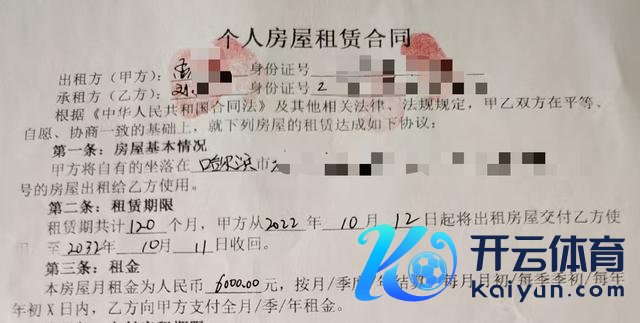 个人房屋租赁合同
出租方（甲方）： 身份证号
承租方（乙方）：刘 身份证号 2
根据《中华人民共和国合同法》及其他相关法律、法规规定，甲乙双方在平等、
自愿、协商一致的基础上，就下列房屋的租赁达成如下协议：
第一条：房屋基本情况
甲方将自有的坐落在哈尔滨市
号的房屋出租给乙方使用。
第二条：租赁期限
租赁期共计120个月，甲方从2022年10月12日起将出租房屋交付乙方使
至2032年10月11日收回。
第三条：租金
本房屋月租金为人民币6000.00元，按月/季度/年结算。每月月初/每季季初/每年
年初X日内，乙方向甲方支付全月/季/年租金。
开云体育
kaiyun.com